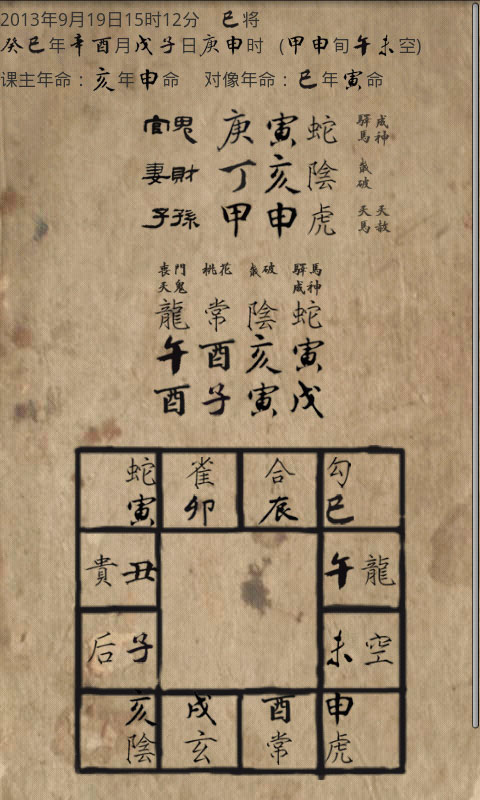 2013年9月19日15时12分 巳将
癸巳年辛酉月戊子日庚申时 (甲申旬午未空)
课主年命：亥年申命 对像年命：巳年寅命
官鬼 庚寅蛇 驛馬 成神
妻財 丁亥陰 歲破
子孫 甲申虎 天馬 天赦
喪門 桃花 歲破 驛馬
天鬼 成神
龍常陰蛇
午酉亥寅
酉子寅戌
蛇雀合勾
寅卯辰巳
貴丑 午龍
后子 未空
亥戌酉申
陰玄常虎